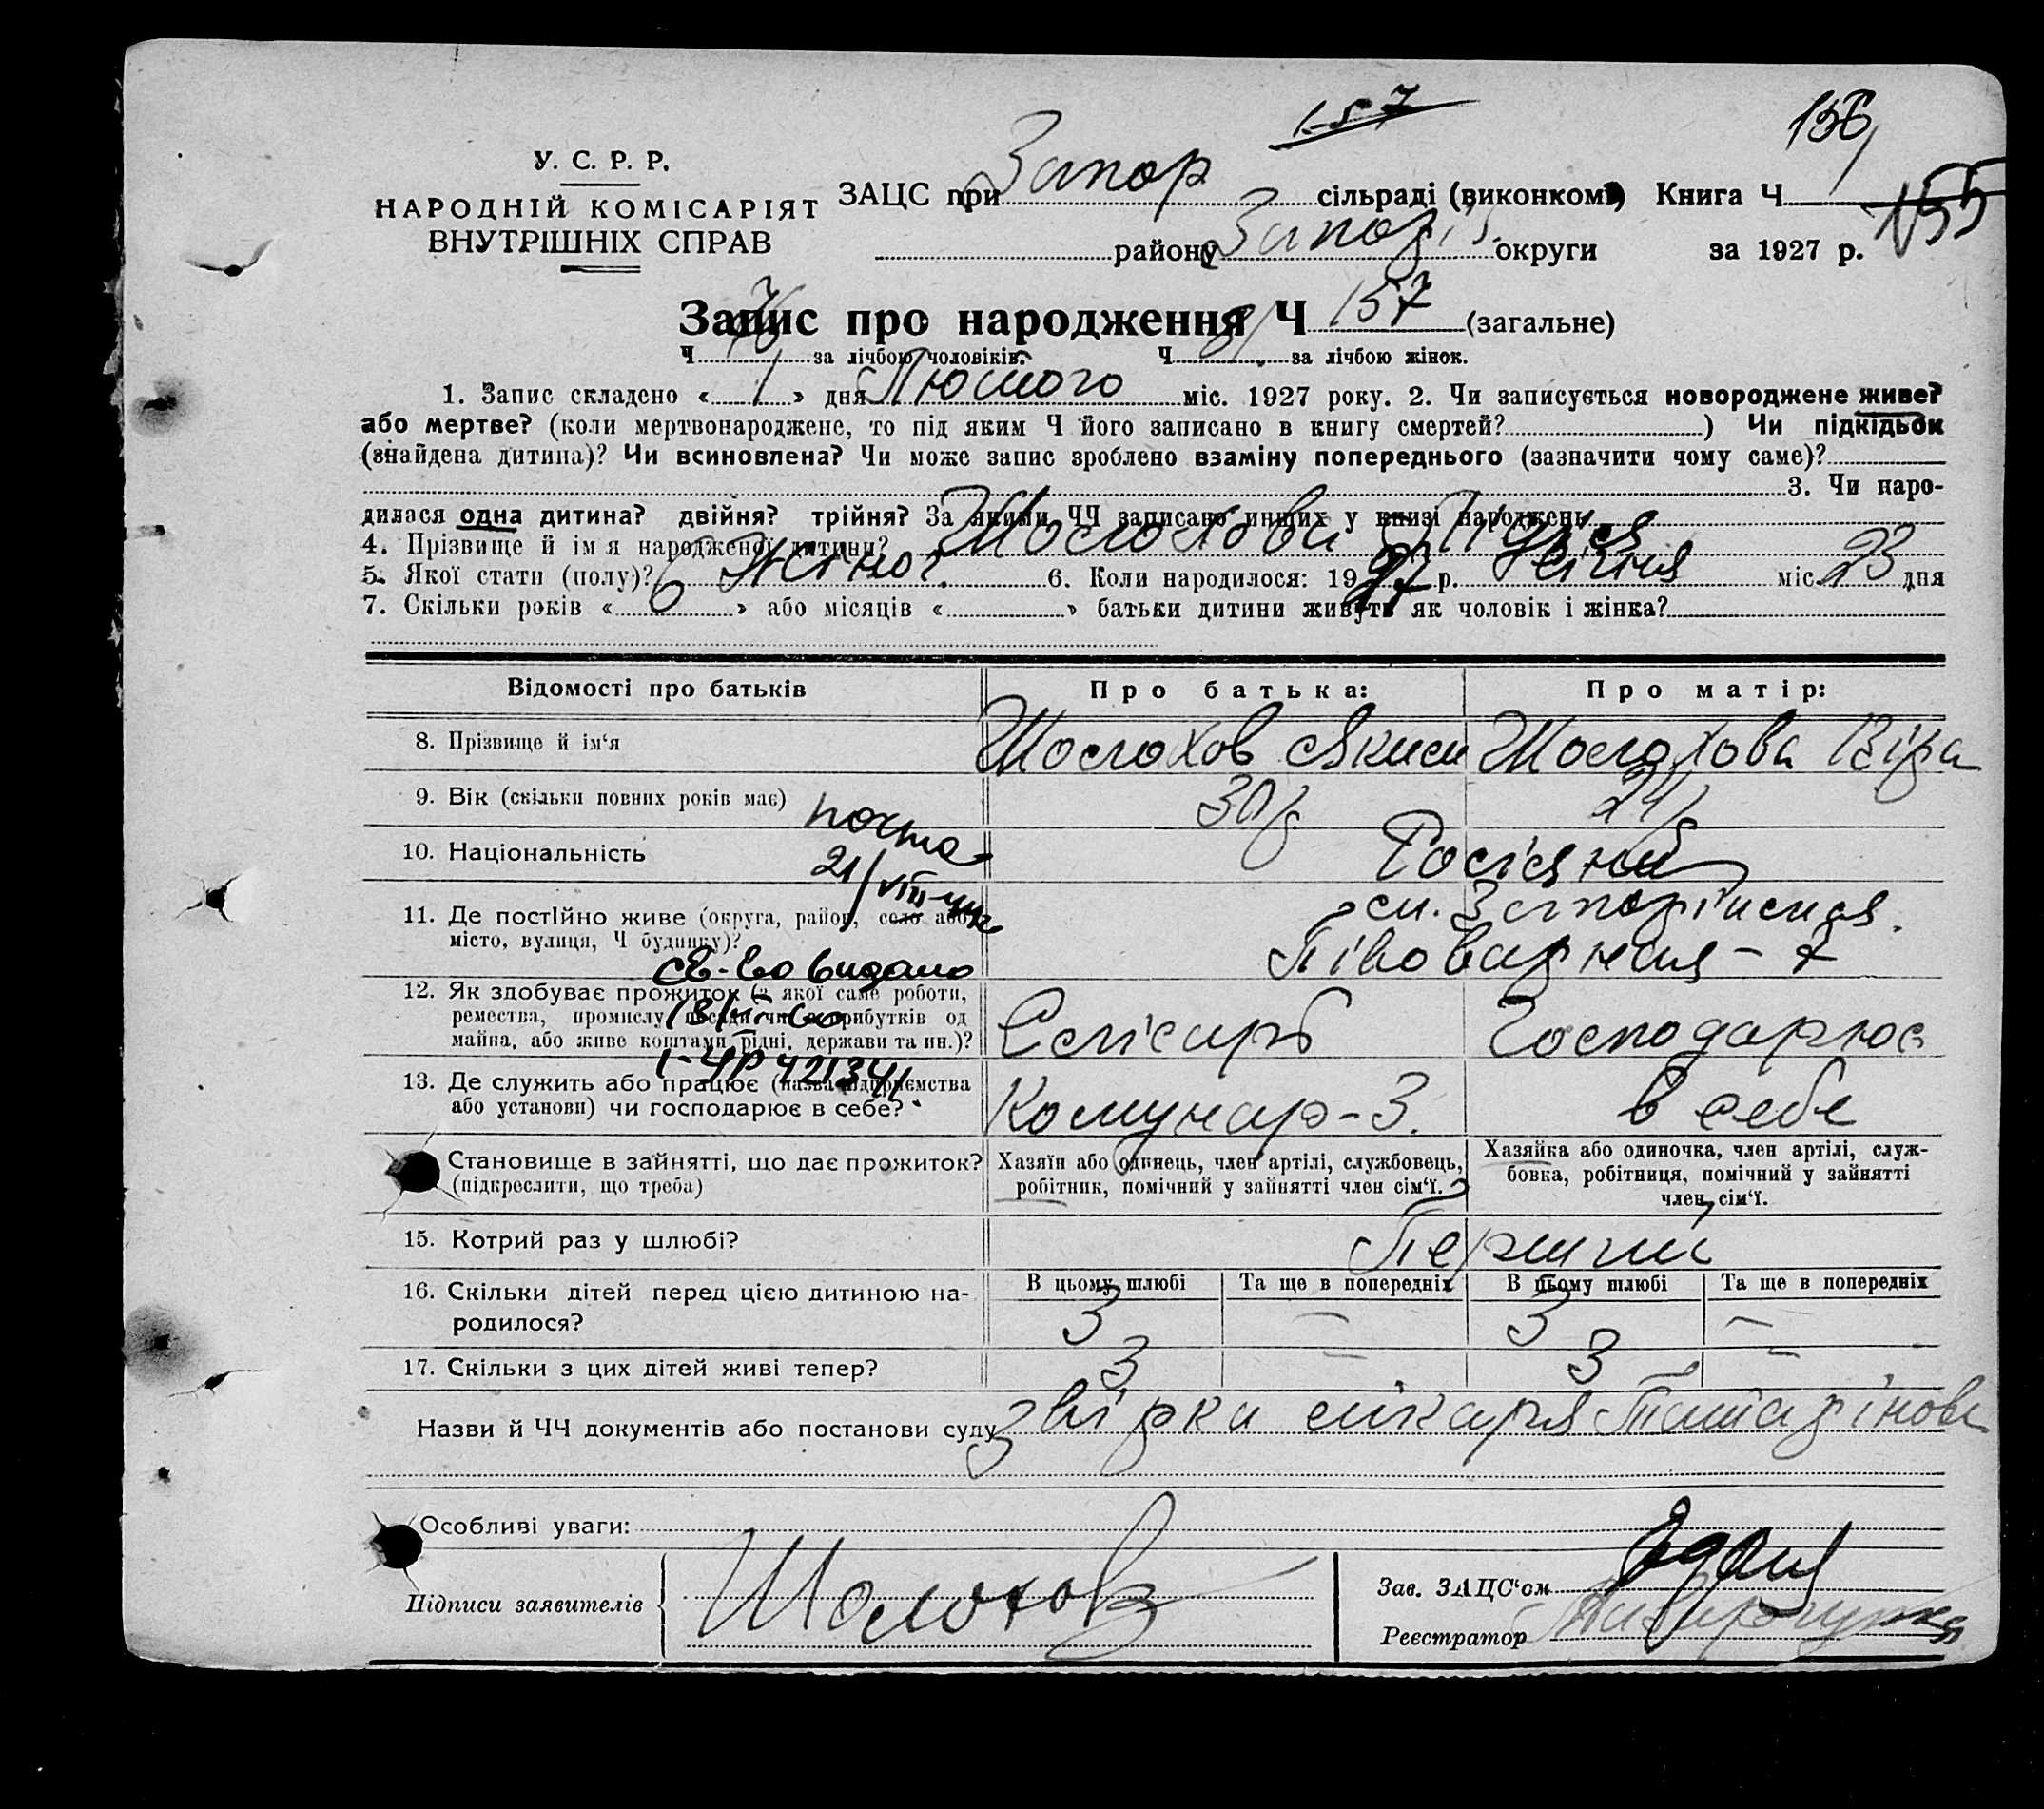 157
156
У. С. Р. Р.
НАРОДНІЙ КОМІСАРІЯТ
ВНУТРІШНІХ СПРАВ
ЗАЦС при Запор сільраді (виконкомі) Книга Ч 155
району Запоріз округи за 1927 р.
Запис про народження Ч 157 (загальне)
Ч 76 за лічбою чоловіків. Ч 81 за лічбою жінок.
1. Запис складено « 1 » дня Лютого міс. 1927 року. 2. Чи записується новороджене живе?
або мертве? (коли мертвонароджене, то під яким Ч його записано в книгу смертей?) Чи підкідьок
(знайдена дитина)? Чи всиновлена? Чи може запис зроблено взаміну попереднього (зазначити чому саме)?
3. Чи наро-
дилася одна дитина? двійня? трійня? За якими ЧЧ записано инших у книзі народжень
4. Прізвище й ім'я народженої дитини? Шолохова Лідія
5. Якої стати (полу)? Жіноч. 6. Коли народилося: 1927 р. Січня міс. 23 дня
7. Скільки років « 6 » або місяців « » батьки дитини живуть як чоловік і жінка?
Відомості про батьків
Про батька:
Про матір:
8. Прізвище й ім'я Шолохов Яким Шолохова Віра
9. Вік (скільки повних років має) 30 р 24 р
почта
10. Національність Росіяни
21/VIII
11. Де постійно живе (округа, район, село або
місто, вулиця, Ч будинку)?
ст. Запоріжжя.
Півоварная - 7
св-во видано
12. Як здобуває прожиток (з якої саме роботи,
ремества, промислу, посади чи з прибутків од
майна, або живе коштами рідні, держави та ин.)?
Слісарь Господарює
І-УР 421341
13. Де служить або працює (назва підприємства
або установи) чи господарює в себе?
Комунар-3. в себе
Становище в зайнятті, що дає прожиток?
(підкреслити, що треба)
Хазяїн або одинець, член артілі, службовець,
робітник, помічний у зайнятті член сім'ї.
Хазяйка або одиночка, член артілі, служ-
бовка, робітниця, помічний у зайнятті
член сім'ї.
15. Котрий раз у шлюбі? Перший
16. Скільки дітей перед цією дитиною на-
родилося?
В цьому шлюбі Та ще в попередніх В цьому шлюбі Та ще в попередніх
3 — 3 —
17. Скільки з цих дітей живі тепер? 3 — 3 —
Назви й ЧЧ документів або постанови суду Звірка лікаря
Особливі уваги:
Підписи заявителів Шолохов
Зав. ЗАЦС'ом
Реєстратор